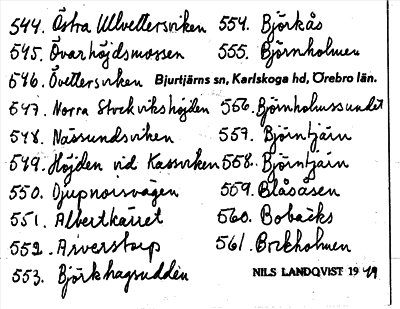 544. Östra Ullvettersviken
545. Övarhöjdsmossen
546. Övettersviken
547. Norra Stockvikshöjden
548. Nässundsviken
549. Höjden vid Kassviken
550. Djupnorsvägen
551. Albertkärret
552. Arverstorp
553. Björkhagsudden
554. Björkås
555. Björnholmen
Bjurtjärns sn, Karlskoga hd, Örebro län.
556. Björnholmssundet
557. Björntjärn
558. Björntjärn
559. Blåsåsen
560. Bobäcks
561. Bockholmen
NILS LANDQVIST 19 49